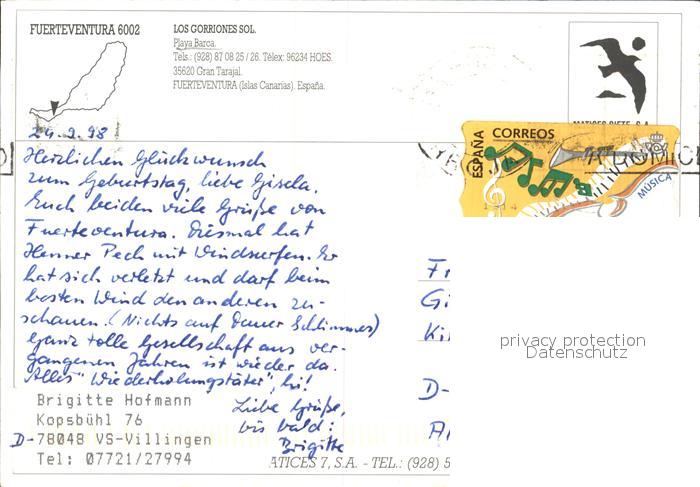 FUERTEVENTURA 6002
LOS GORRIONES SOL.
Playa Barca.
Tels.: (928) 87 08 25 / 26. Télex: 96234 HOES.
35620 Gran Tarajal.
FUERTEVENTURA (Islas Canarias). España.
MATICES SIETE, S.A.
ESPAÑA
CORREOS
MÚSICA
24.9.98
Herzlichen Glückwunsch
zum Geburtstag, liebe Gisela.
Euch beiden viele Grüße von
Fuerteventura. Diesmal hat
Henner Pech mit Windsurfen. Er
hat sich verletzt und darf beim
besten Wind den anderen zu-
schauen. (Nichts auf Dauer Schlimmes)
Ganz tolle Gesellschaft aus ver-
gangenen Jahren ist wieder da.
Alles "Wiederholungstäter", hi!
Liebe Grüße,
bis bald:
Brigitte
Brigitte Hofmann
Kopsbühl 76
D-78048 VS-Villingen
Tel: 07721/27994
Fr
Gi
Ki
D-
privacy protection
Datenschutz
ATICES 7, S.A. - TEL.: (928) 5